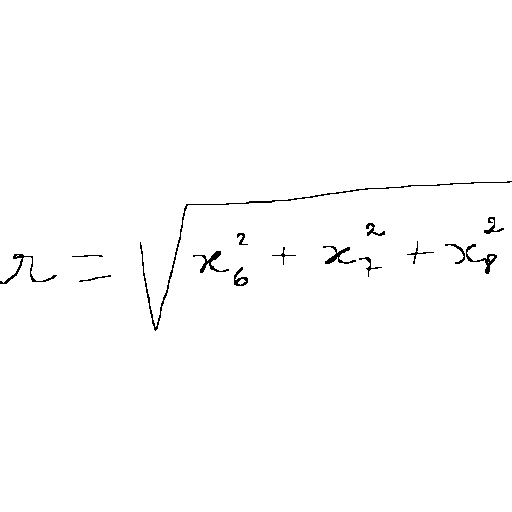 r = \sqrt{x_6^2 + x_7^2 + x_8^2}